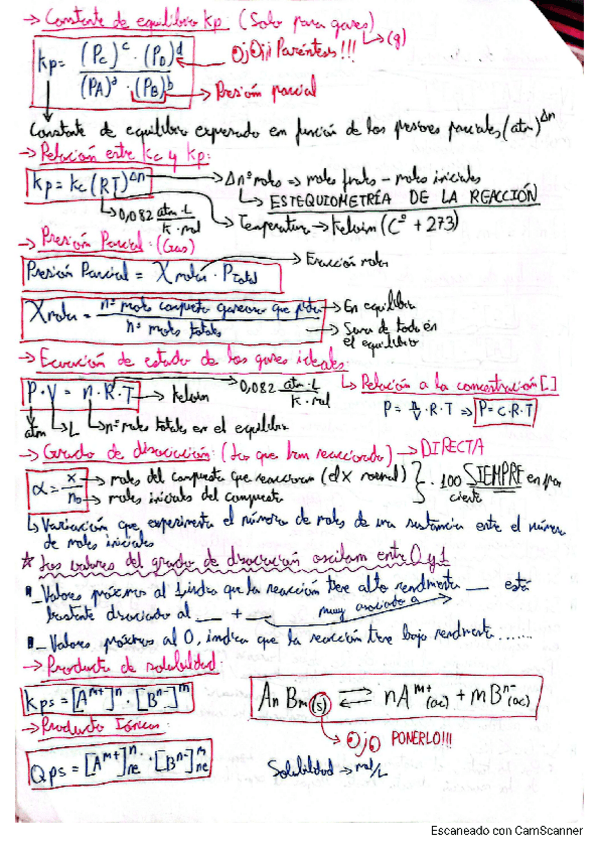 → Constante de equilibrio Kp: (Solo para gases)
↳(g)
Kp = (Pc)^c · (PD)^d / (PA)^a · (PB)^b
OjOjji Paréntesis!!!
→ Presión parcial
Constante de equilibrio expresado en función de las presiones parciales, (atm)^Δn
→ Relación entre Kc y Kp:
Kp = Kc (RT)^Δn → Δn° moles ⇒ moles finales - moles iniciales
↳ ESTEQUIOMETRÍA DE LA REACCIÓN
↳ 0,082 atm·L / K·mol
→ Temperatura → Kelvin (C° + 273)
→ Presión Parcial: (Gas)
Presión Parcial = Xmolar · PTotal
→ Fracción molar
Xmolar = n° moles compuesto gaseoso que / n° moles totales
→ En equilibrio
→ Suma de todo en el equilibrio
→ Ecuación de estado de los gases ideales:
P · V = n · R · T → Kelvin
→ 0,082 atm·L / K·mol
↳ Relación a la concentración []
P = n/V · R · T ⇒ P = C · R · T
atm
L
n° moles totales en el equilibrio
→ Grado de disociación: (Los que han reaccionado) → DIRECTA
α = x / n₀
→ moles del compuesto que reaccionan (el x normal)
→ moles iniciales del compuesto
} · 100 SIEMPRE en por ciento
↳ Variación que experimenta el número de moles de una sustancia entre el número
de moles iniciales
★ Los valores del grado de disociación oscilan entre 0 y 1
_Valores próximos al 1, indica que la reacción tiene alto rendimiento __ está
bastante disociado al __ + __
muy asociado a
_ Valores próximos al 0, indica que la reacción tiene bajo rendimiento.......
→ Producto de solubilidad:
Kps = [A^m+]^n · [B^n-]^m
AnBm(s) ⇄ nA^m+(ac) + mB^n-(ac)
→ Ojo PONERLO!!!
→ Producto Iónico:
Qps = [A^m+]^n ne · [B^n-]^m ne
Solubilidad → mol/L
Escaneado con CamScanner